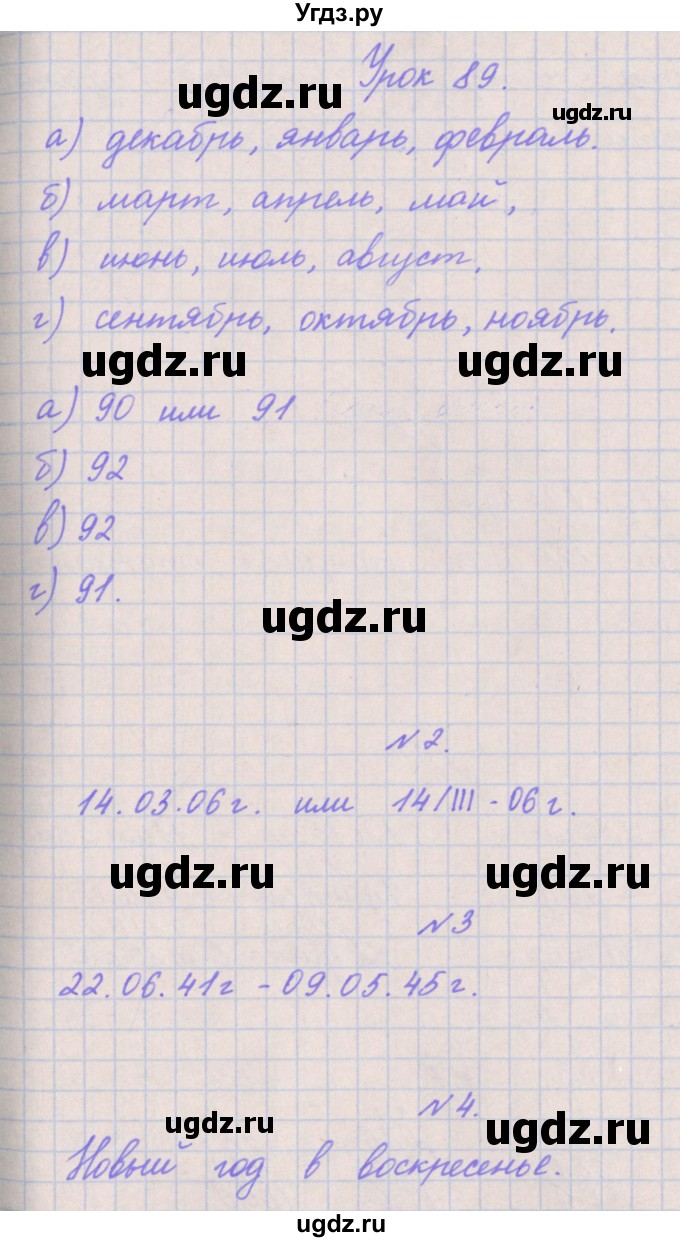 Угдз.ру
Урок 89.
ugdz.ru
ugdz.ru
а) декабрь, январь, февраль.
б) март, апрель, май,
в) июнь, июль, август.
г) сентябрь, октябрь, ноябрь.
ugdz.ru
ugdz.ru
а) 90 или 91
б) 92
в) 92
г) 91.
ugdz.ru
№2.
14.03.06г. или 14/III-06г.
ugdz.ru
ugdz.ru
№3
22.06.41г - 09.05.45г.
№4.
ugdz.ru
ugdz.ru
Новый год в воскресенье.
ugdz.ru